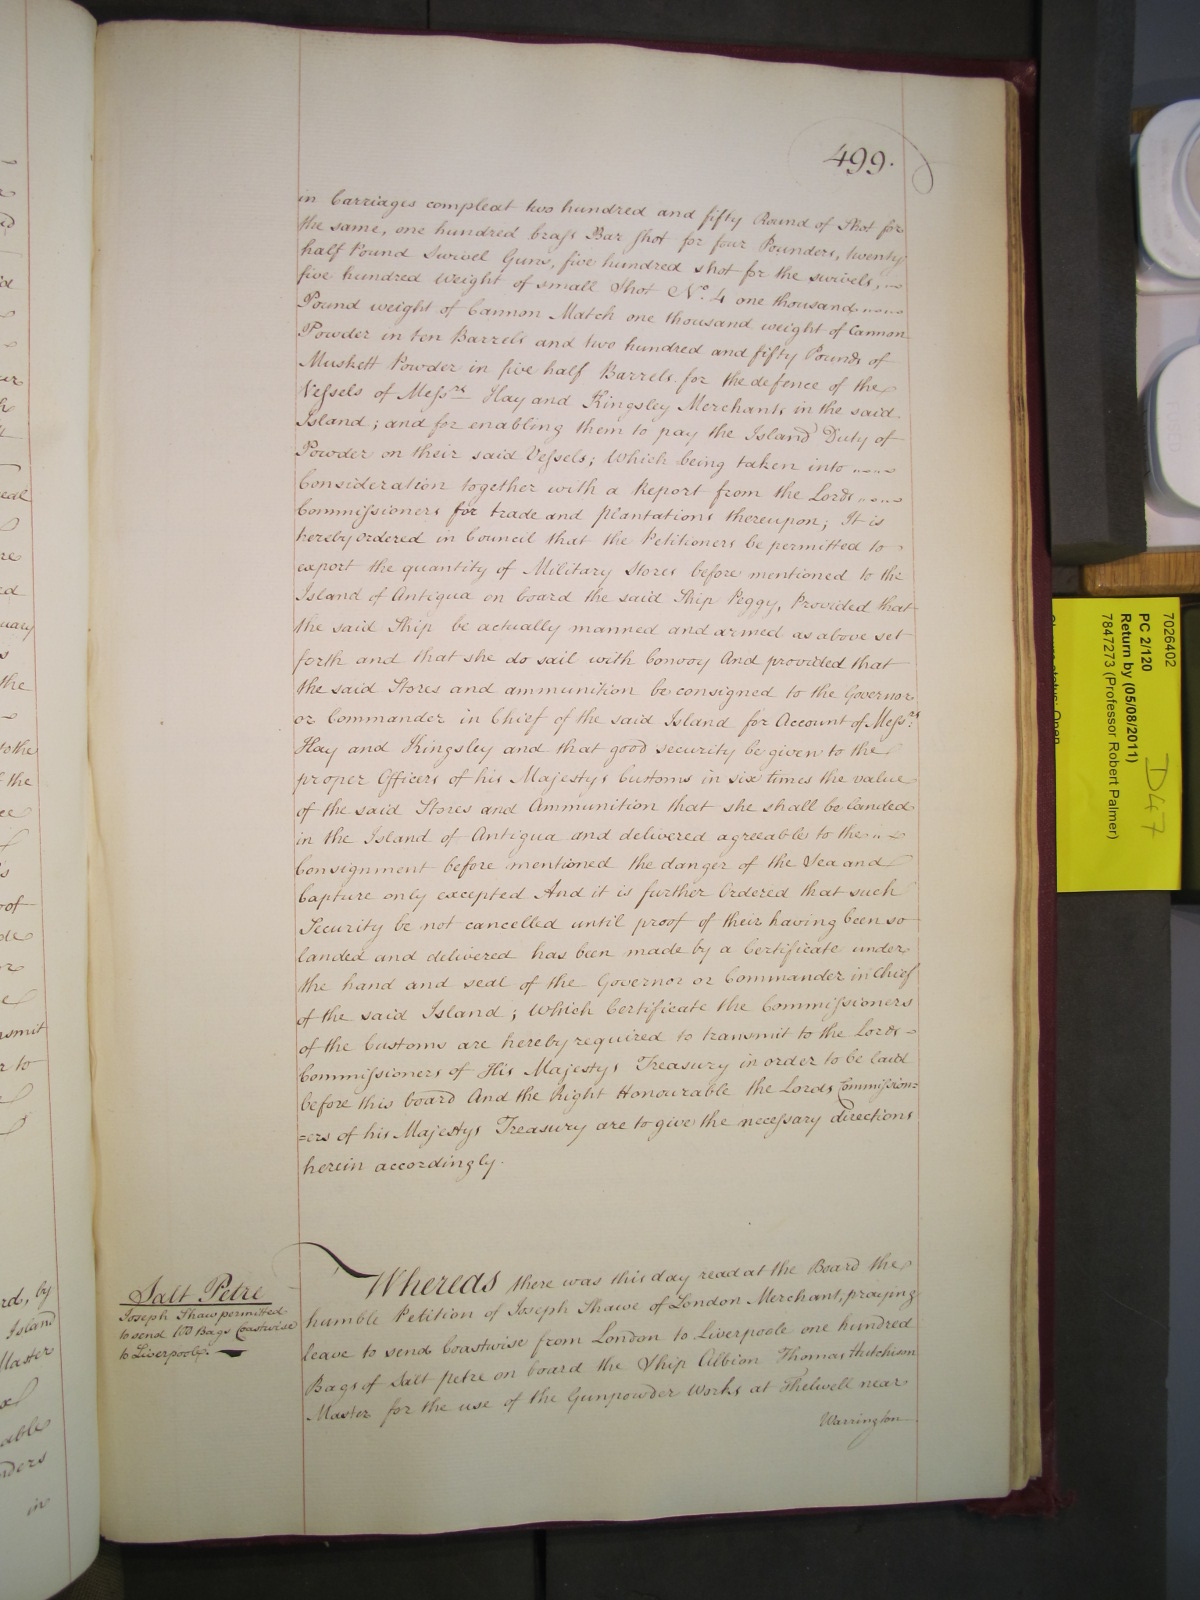 499.
in Carriages compleat two hundred and fifty Round of Shot for
the same, one hundred brass Bar Shot for four Pounders, twenty
half Pound Swivel Guns, five hundred shot for the swivels,
five hundred weight of small Shot No. 4 one thousand
Pound weight of Cannon Match one thousand weight of Cannon
Powder in ten Barrels and two hundred and fifty Pounds of
Muskett Powder in five half Barrels for the defence of the
Vessels of Messrs Hay and Kingsley Merchants in the said
Island; and for enabling them to pay the Island Duty of
Powder on their said Vessels; Which being taken into
Consideration together with a Report from the Lords
Commissioners for trade and plantations thereupon; It is
hereby ordered in Council that the Petitioners be permitted to
export the quantity of Military Stores before mentioned to the
Island of Antigua on board the said Ship Peggy, Provided that
the said Ship be actually manned and armed as above set
forth and that she do sail with Convoy And provided that
the said Stores and ammunition be consigned to the Governor
or Commander in Chief of the said Island for Account of Messrs.
Hay and Kingsley and that good security be given to the
proper Officers of his Majestys Customs in six times the value
of the said Stores and Ammunition that she shall be landed
in the Island of Antigua and delivered agreeable to the
Consignment before mentioned the danger of the Sea and
Capture only excepted And it is further Ordered that such
Security be not cancelled until proof of their having been so
landed and delivered has been made by a Certificate under
the hand and seal of the Governor or Commander in Chief
of the said Island; Which Certificate the Commissioners
of the Customs are hereby required to transmit to the Lords
Commissioners of His Majestys Treasury in order to be laid
before this board And the Right Honourable the Lords Commission=
=ers of his Majestys Treasury are to give the necessary directions
herein accordingly.
Salt Petre
Joseph Shaw permitted
to send 100 Bags Coastwise
to Liverpoole.
Whereas there was this day read at the Board the
humble Petition of Joseph Shawe of London Merchant, praying
leave to send Coastwise from London to Liverpoole one hundred
Bags of Salt petre on board the Ship Albion Thomas Hutchison
Master for the use of the Gunpowder Works at Thelwell near
Warrington
7026402
PC 2/120
Return by (05/08/2011)
7847273 (Professor Robert Palmer)
D47